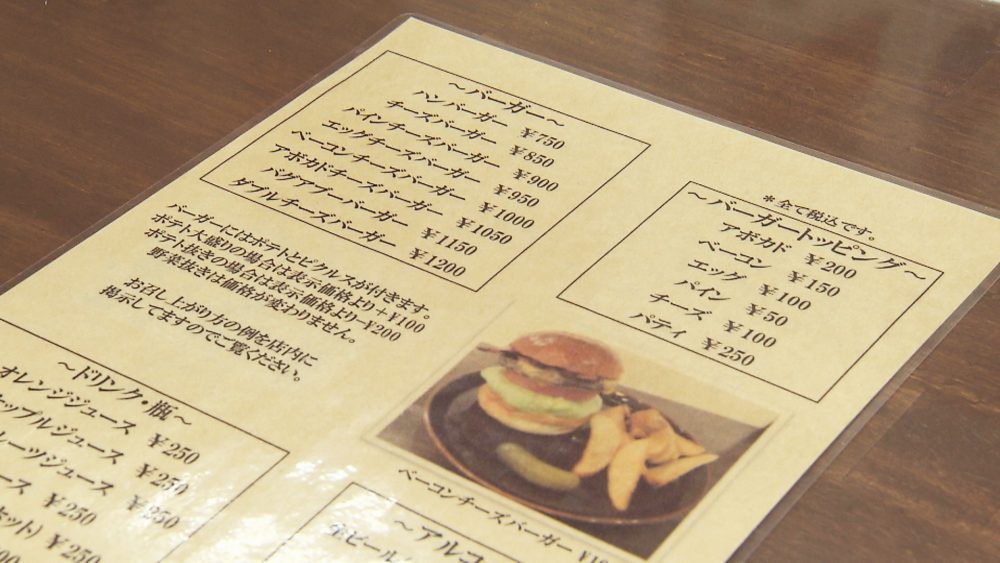 ～バーガー～
ハンバーガー ¥750
チーズバーガー ¥850
パインチーズバーガー ¥900
エッグチーズバーガー ¥950
ベーコンチーズバーガー ¥1000
アボカドチーズバーガー ¥1050
バグアブーバーガー ¥1150
ダブルチーズバーガー ¥1200
バーガーにはポテトとピクルスが付きます。
ポテト大盛りの場合は表示価格より＋¥100
ポテト抜きの場合は表示価格より−¥200
野菜抜きは価格が変わりません。
お召し上がり方の例を店内に
掲示してますのでご覧ください。
＊全て税込です。
～バーガートッピング～
アボカド ¥200
ベーコン ¥150
エッグ ¥100
パイン ¥50
チーズ ¥100
パティ ¥250
ベーコンチーズバーガー
～ドリンク・瓶～
オレンジジュース ¥250
ップルジュース ¥250
ーツジュース ¥250
ース ¥250
ット) ¥250
～アルコ
生ビール